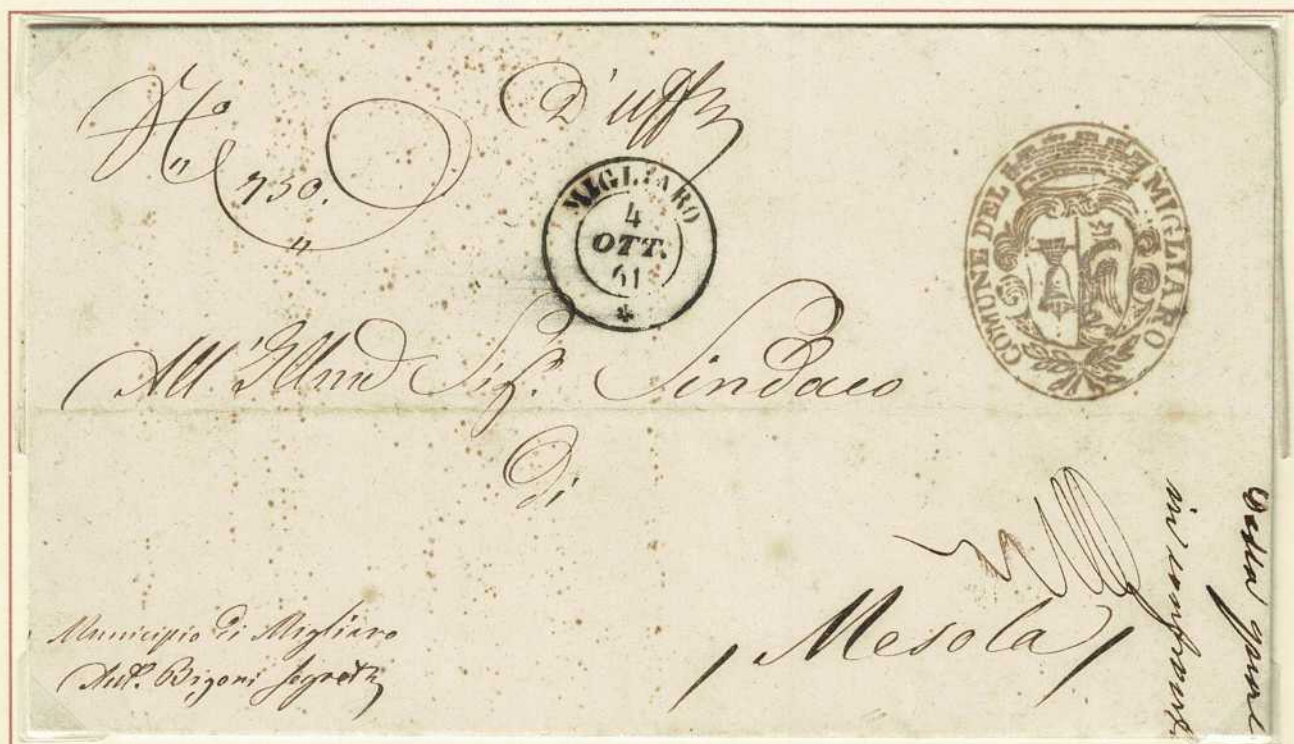 N.º 730.
D'uffº
MIGLIARO
4
OTT.
61
COMUNE DEL MIGLIARO
All' Illmo Sig. Sindaco
di
Mesola
Municipio di Migliaro
Antº. Bigoni Segretº